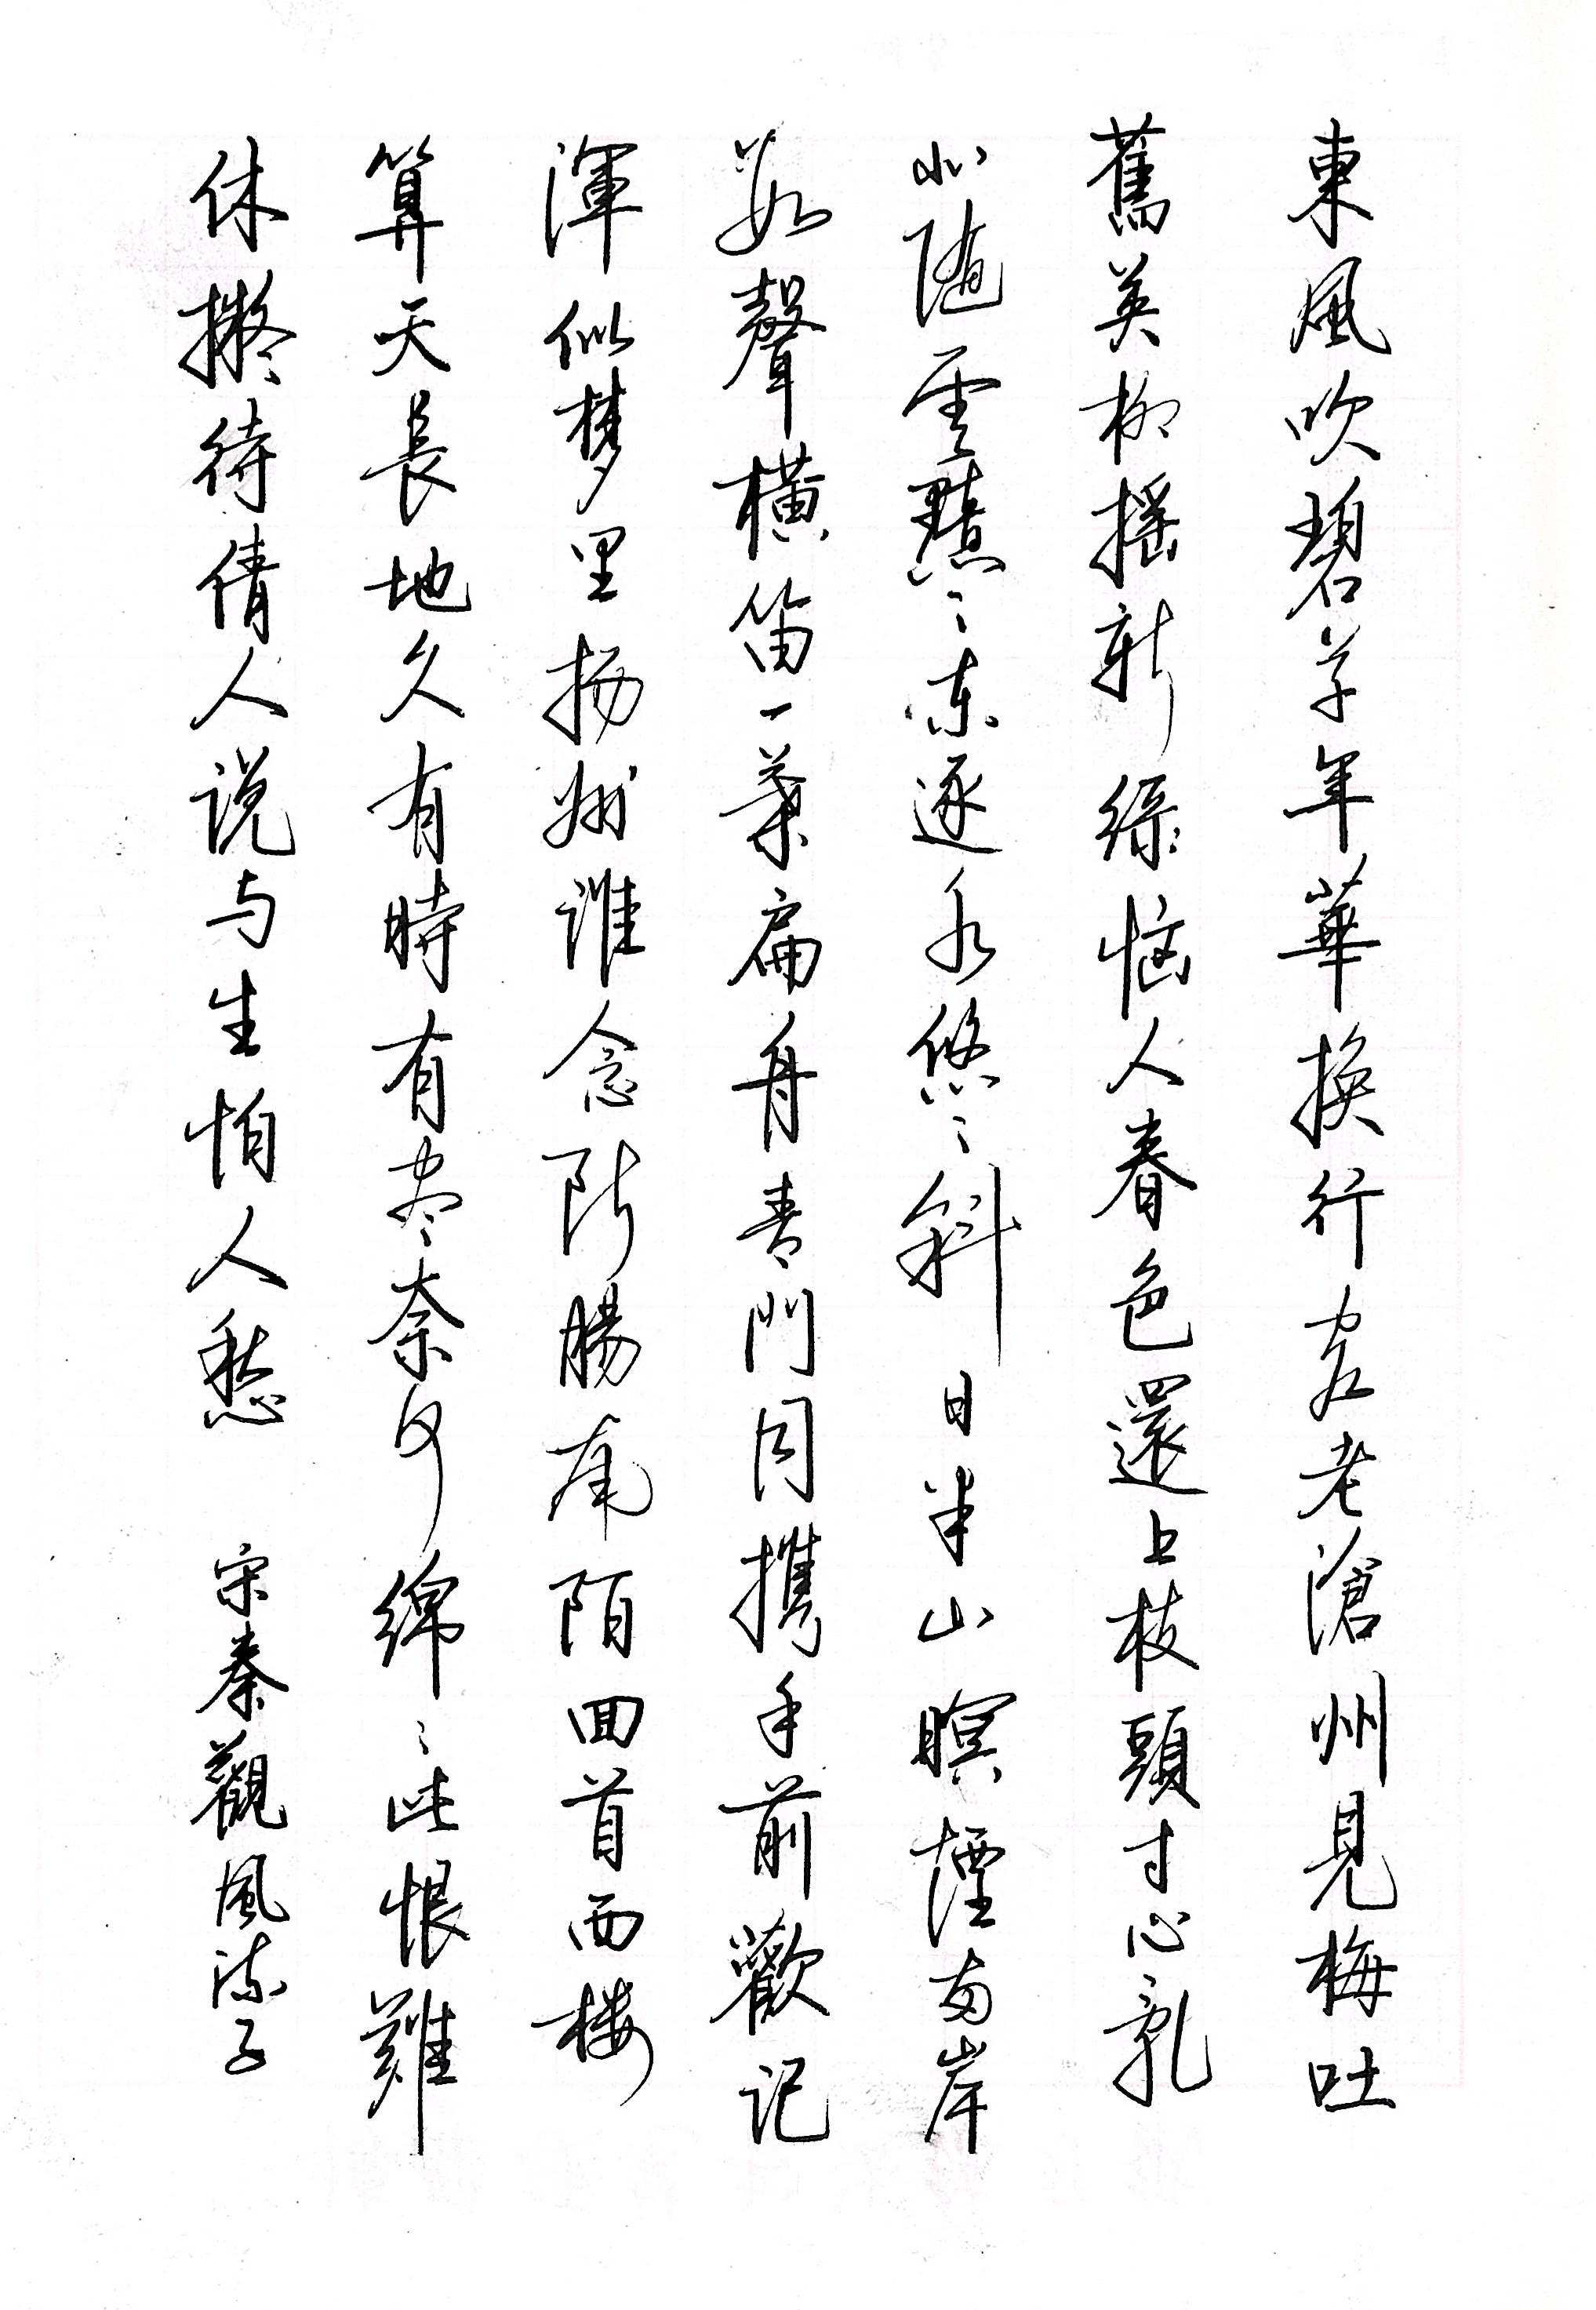 東風吹碧草年華換行客老滄州見梅吐
舊英柳搖新綠惱人春色還上枝頭寸心亂
北隨雲黯〻東逐水悠〻斜日半山暝煙兩岸
數聲橫笛一葉扁舟青門同携手前歡記
渾似梦里扬州誰念断腸南陌回首西楼
算天長地久有時有尽奈何綿〻此恨難
休擬待倩人説与生怕人愁 宋秦觀風流子